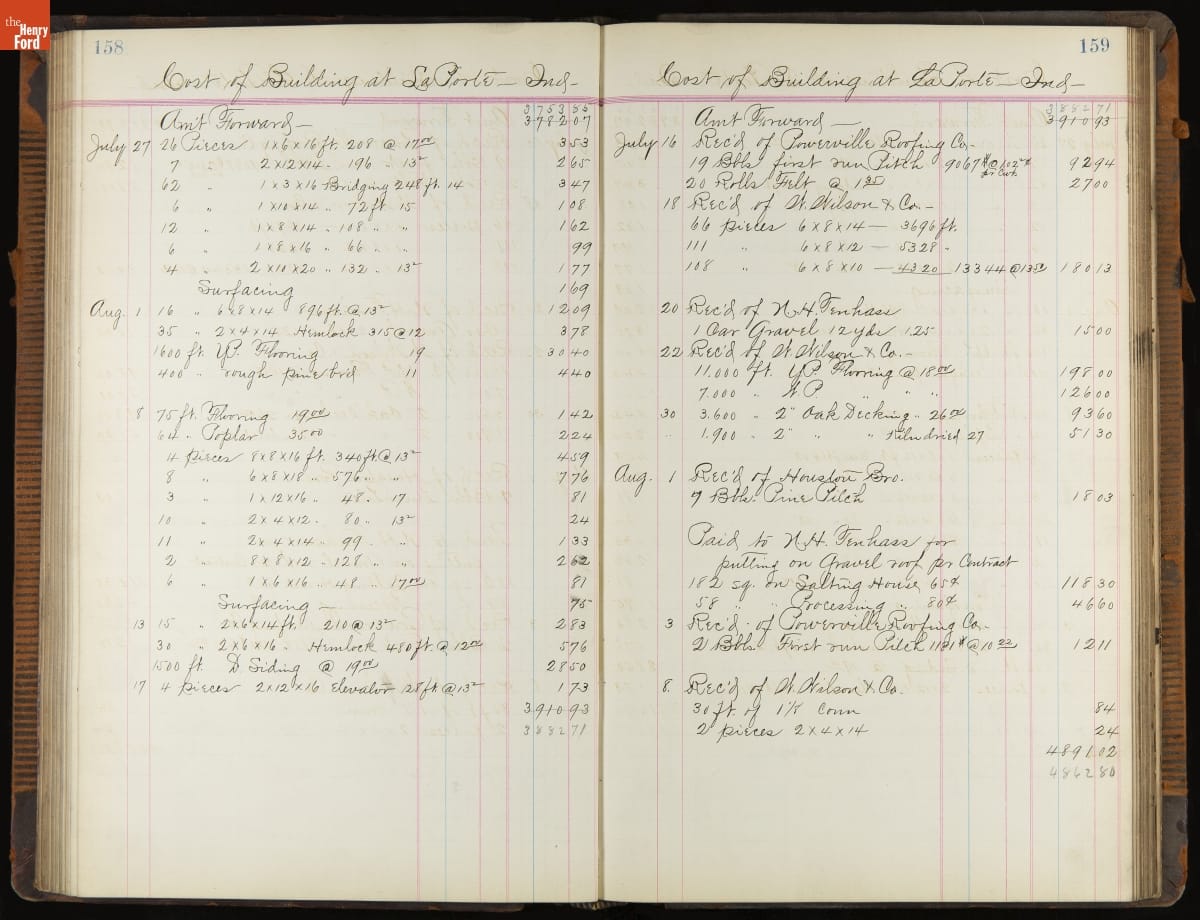 the Henry Ford
158
Cost of Building at LaPorte — Ind —
3 7 5 3 85
Am't Forward — 3 7 8 2 07
July 27 26 Pieces 1x6x16 ft. 208 @ 17 00 3 53
7 " 2x12x14 " 196 " 13 50 2 65
62 " 1x3x16 Bridging 248 ft. 14 3 47
6 " 1x10x14 " 72 ft 15 1 08
12 " 1x8x14 " 108 " " 1 62
6 " 1x8x16 " 66 " " 99
4 " 2x10x20 " 132 " 13 50 1 77
Surfacing 1 69
Aug. 1 16 " 6x8x14 896 ft. @ 13 50 12 09
35 " 2x4x14 Hemlock 315 @ 12 3 78
1600 ft. Y.P. Flooring 19 30 40
400 " rough pine brd 11 4 40
8 75 ft. Flooring 19 00 1 42
64 " Poplar 35 00 2 24
4 pieces 8x8x16 ft. 340 ft @ 13 50 4 59
8 " 6x8x18 " 576 " " 7 76
3 " 1x12x16 " 48 " 17 81
10 " 2x4x12 " 80 " 13 50 24
11 " 2x4x14 " 99 " " 1 33
2 " 8x8x12 " 128 " " 2 62
6 " 1x6x16 " 48 " 17 00 81
Surfacing — 75
13 15 " 2x6x14 ft. 210 @ 13 50 2 83
30 " 2x6x16 " Hemlock 480 ft. @ 12 00 5 76
1500 ft. D Siding @ 19 00 28 50
17 4 pieces 2x12x16 Elevator 128 ft @ 13 50 1 73
3 9 1 0 93
3 8 8 2 71
159
Cost of Building at LaPorte — Ind —
3 8 8 2 71
Am't Forward — 3 9 1 0 93
July 16 Rec'd of Powerville Roofing Co. —
19 Bbls first run Pitch 9067 # @ 1.02 ½ pr Cwt. 92 94
20 Rolls Felt @ 1 35 27 00
18 Rec'd of W. Wilson & Co. —
66 pieces 6x8x14 — 3696 ft.
111 " 6x8x12 — 5328 "
108 " 6x8x10 — 4320 13344 @ 13 50 180 13
20 Rec'd of N. H. Tenhass
1 Car Gravel 12 yds 1.25 15 00
22 Rec'd of W. Wilson & Co. —
11.000 ft. Y.P. Flooring @ 18 00 198 00
7.000 " W.P. " " " 126 00
30 3.600 " 2" Oak Decking " 26 00 93 60
" 1.900 " 2" " " Kiln dried 27 51 30
Aug. 1 Rec'd of Houston Bro.
7 Bbls. Pine Pitch 18 03
Paid to N. H. Tenhass for
putting on Gravel roof pr Contract
182 sq. on Salting House 65¢ 118 30
58 " " Processing " 80¢ 46 60
3 Rec'd of Powerville Roofing Co. —
2 Bbls. First run Pitch 1181 # @ 10 22 12 11
8 Rec'd of W. Wilson & Co.
30 ft. of 1⅛ Conn 84
2 pieces 2x4x14 24
4 8 9 1 02
4 8 6 2 80